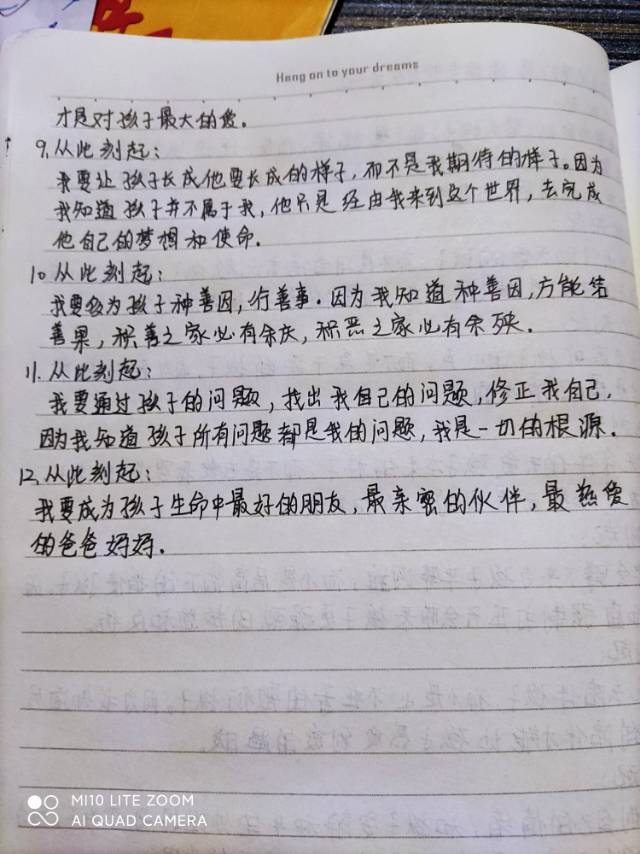 Hang on to your dreams
才是对孩子最大的爱。
9.从此刻起:
我要让孩子长成他要长成的样子,而不是我期待的样子。因为
我知道孩子并不属于我,他只是经由我来到这个世界,去完成
他自己的梦想和使命.
10 从此刻起:
我要多为孩子种善因,行善事.因为我知道种善因,方能结
善果,积善之家必有余庆,积恶之家必有余殃.
11.从此刻起:
我要通过孩子的问题,找出我自己的问题,修正我自己,
因为我知道孩子所有问题都是我的问题,我是一切的根源.
12.从此刻起:
我要成为孩子生命中最好的朋友,最亲密的伙伴,最慈爱
的爸爸妈妈.
MI10 LITE ZOOM
AI QUAD CAMERA